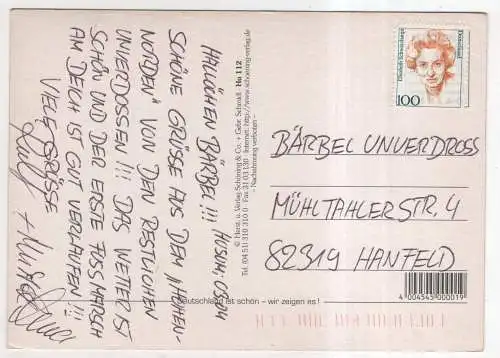 HALLÖCHEN BÄRBEL!!! HUSUM, 03.04
SCHÖNE GRÜSSE AUS DEM "HOHEN
NORDEN" VON DEN RESTLICHEN
UNVERDOSSEN!!! DAS WETTER IST
SCHÖN UND DER ERSTE FUSSMARCH
AM DEICH IST GUT VERLAUFEN!!!
VIELE GRÜSSE
© Herst. u. Verlag Schöning & Co. + Gebr. Schmidt Hu 112
Tel. (04 51) 310 310 Fax 31 03 130 Internet: http://www.schoening-verlag.de
- Nachahmung verboten -
Deutschland ist schön – wir zeigen es!
Elisabeth Schwarzhaupt
Deutschland
100
BÄRBEL UNVERDROSS
MÜHLTAHLERSTR. 4
82319 HANFELD
4 004545 000019